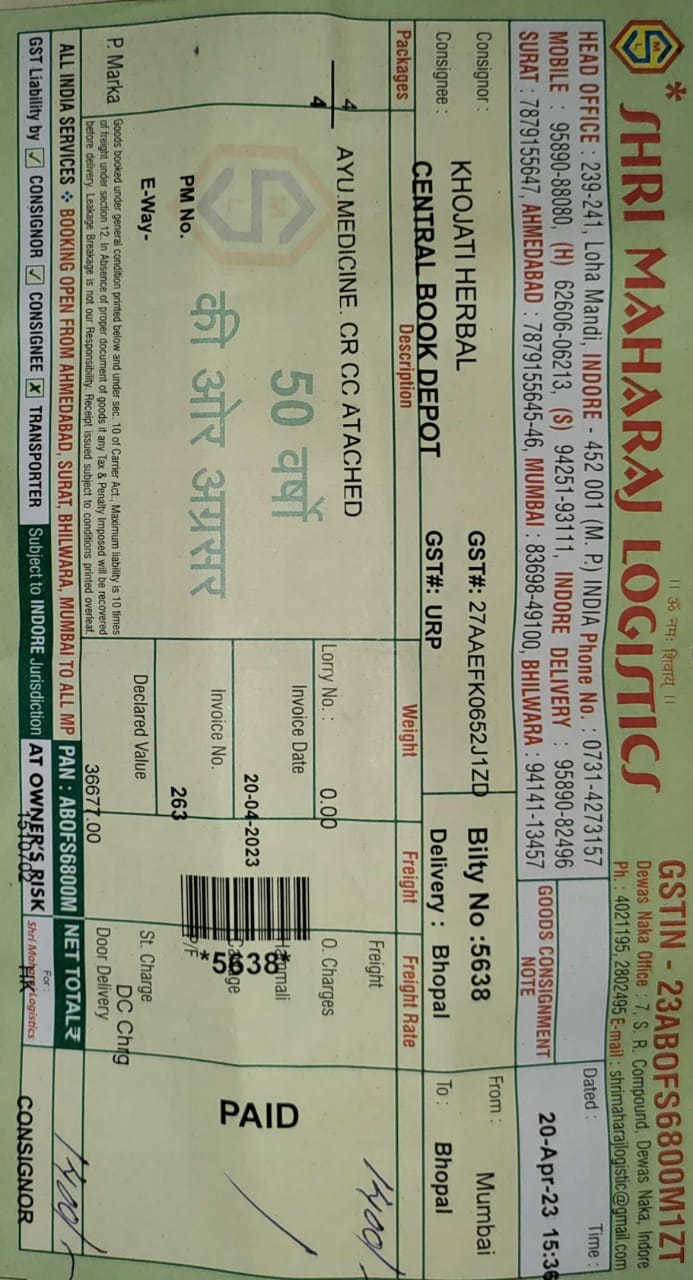 ॥ ॐ नमः शिवाय ॥
GSTIN - 23ABOFS6800M1ZT
* SHRI MAHARAJ LOGISTICS
Dewas Naka Office : 7, S. R. Compound, Dewas Naka, Indore
Ph. : 4021195, 2802495 E-mail : shrimaharajlogistic@gmail.com
HEAD OFFICE : 239-241, Loha Mandi, INDORE - 452 001 (M. P.) INDIA Phone No. : 0731-4273157
MOBILE : 95890-88080, (H) 62606-06213, (S) 94251-93111, INDORE DELIVERY : 95890-82496
SURAT : 7879155647, AHMEDABAD : 7879155645-46, MUMBAI : 83698-49100, BHILWARA : 94141-13457
GOODS CONSIGNMENT
NOTE
Dated : Time :
20-Apr-23 15:36
Consignor : KHOJATI HERBAL GST#: 27AAEFK0652J1ZD Bilty No :5638 From : Mumbai
Consignee : CENTRAL BOOK DEPOT GST#: URP Delivery : Bhopal To : Bhopal
Packages Description Weight Freight Freight Rate
4 AYU.MEDICINE. CR CC ATACHED
4
50 वर्षो
की ओर अग्रसर
PM No.
E-Way-
P. Marka
Lorry No. : 0.00
Invoice Date
20-04-2023
Invoice No.
263
Declared Value
36677.00
*5638*
Freight
O. Charges
Hammali
P/F
St. Charge
DC Chrg
Door Delivery
PAID
Goods booked under general condition printed below and under sec. 10 of Carrier Act., Maximum liability is 10 times
of freight under section 12. In Absence of proper document of goods if any Tax & Penalty Imposed will be recovered
before delivery. Leakage Breakage is not our Responsibility. Receipt issued subject to conditions printed overleaf.
ALL INDIA SERVICES ❖ BOOKING OPEN FROM AHMEDABAD, SURAT, BHILWARA, MUMBAI TO ALL MP PAN : ABOFS6800M NET TOTAL ₹
GST Liability by ✓ CONSIGNOR ✓ CONSIGNEE ✗ TRANSPORTER Subject to INDORE Jurisdiction AT OWNER'S RISK For : Shri Maharaj Logistics
1510702 HK CONSIGNOR